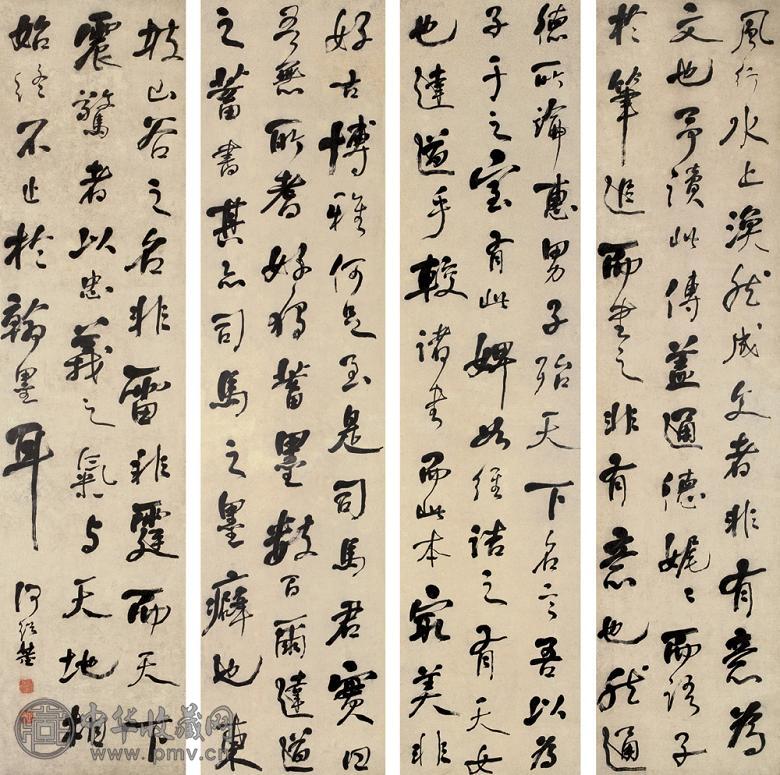 風行水上渙然成文者非有意為
文也予讀此傳蓋通德娓娓而語子
於筆追而書之非有意也然通
德所論惠男子殆天下名言吾以為
子于之室有此婢如經詰之有天女
也達道乎較諸書而此本最美非
好古博雅何足至是司馬君實四
吾無所耆好獨蓄墨數百爾達道
之蓄書甚亦司馬之墨癖也東
坡山谷之名非雷非霆而天下
震驚者以忠義之氣與天地相
始終不止於翰墨耳
何紹基
中华收藏网
www.ipmv.cn